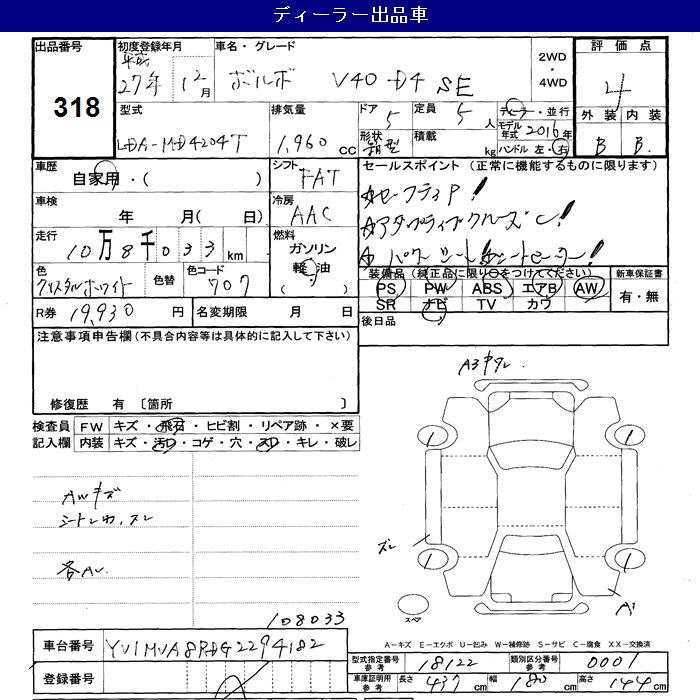 ディーラー出品車
出品番号
318
初度登録年月
平成
27年 12月
車名・グレード
ボルボ V40 D4 SE
2WD
・
4WD
評価点
4
外装 内装
B B
型式
LDA-MD4204T
排気量
1,960 cc
ドア 5
定員 5 人
形状 箱型
積載 kg
ディーラー・並行
モデル年式 2016年
ハンドル 左・右
車歴
自家用・( )
シフト
FAT
車検
年 月( 日)
冷房
AAC
走行
10万8千033 km
燃料
ガソリン
軽油
( )
色
クリスタルホワイト
色替
色コード
707
R券 19,930 円
名変期限 月 日
セールスポイント (正常に機能するものに限ります)
セーフティP!
アダプティブクルーズC!
パワーシート シートヒーター!
装備品(純正品に限り○をつけてください)
PS PW ABS エアB AW
SR ナビ TV カワ
新車保証書
有・無
後日品
注意事項申告欄(不具合内容等は具体的に記入して下さい)
修復歴 有 〔箇所 〕
検査員記入欄
FW キズ・飛石・ヒビ割・リペア跡・×要
内装 キズ・汚D・コゲ・穴・スD・キレ・破レ
AWキズ
各AU
108033
A3キワレ
ズレ
A1
スペア
A-キズ E-エクボ U-凹み W-補修跡 S-サビ C-腐食 XX-交換済
車台番号 YV1MVA8RDG2294182
登録番号
型式指定番号 参考 18122
類別区分番号 参考 0001
車庫証明用 参考 長さ 437 cm 幅 180 cm 高さ 144 cm